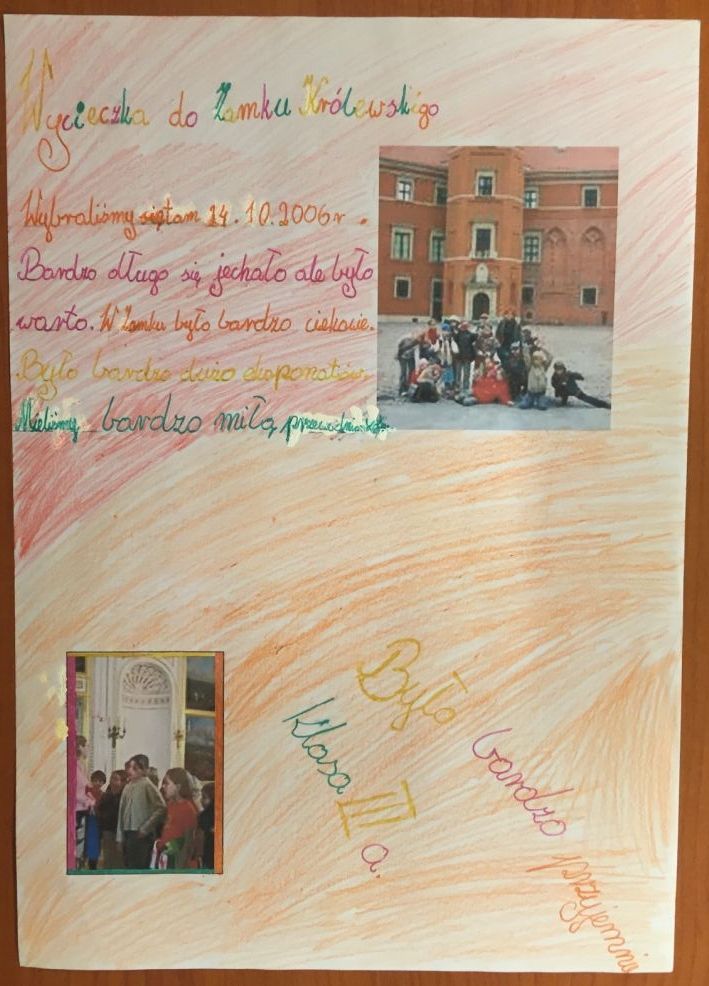 Wycieczka do Zamku Królewskiego
Wybraliśmy się tam 24.10.2006r.
Bardzo długo się jechało ale było
warto. W Zamku było bardzo ciekawie.
Było bardzo dużo eksponatów.
Mieliśmy bardzo miłą przewodniczkę.
Było
bardzo
przyjemnie
klasa
III
a.